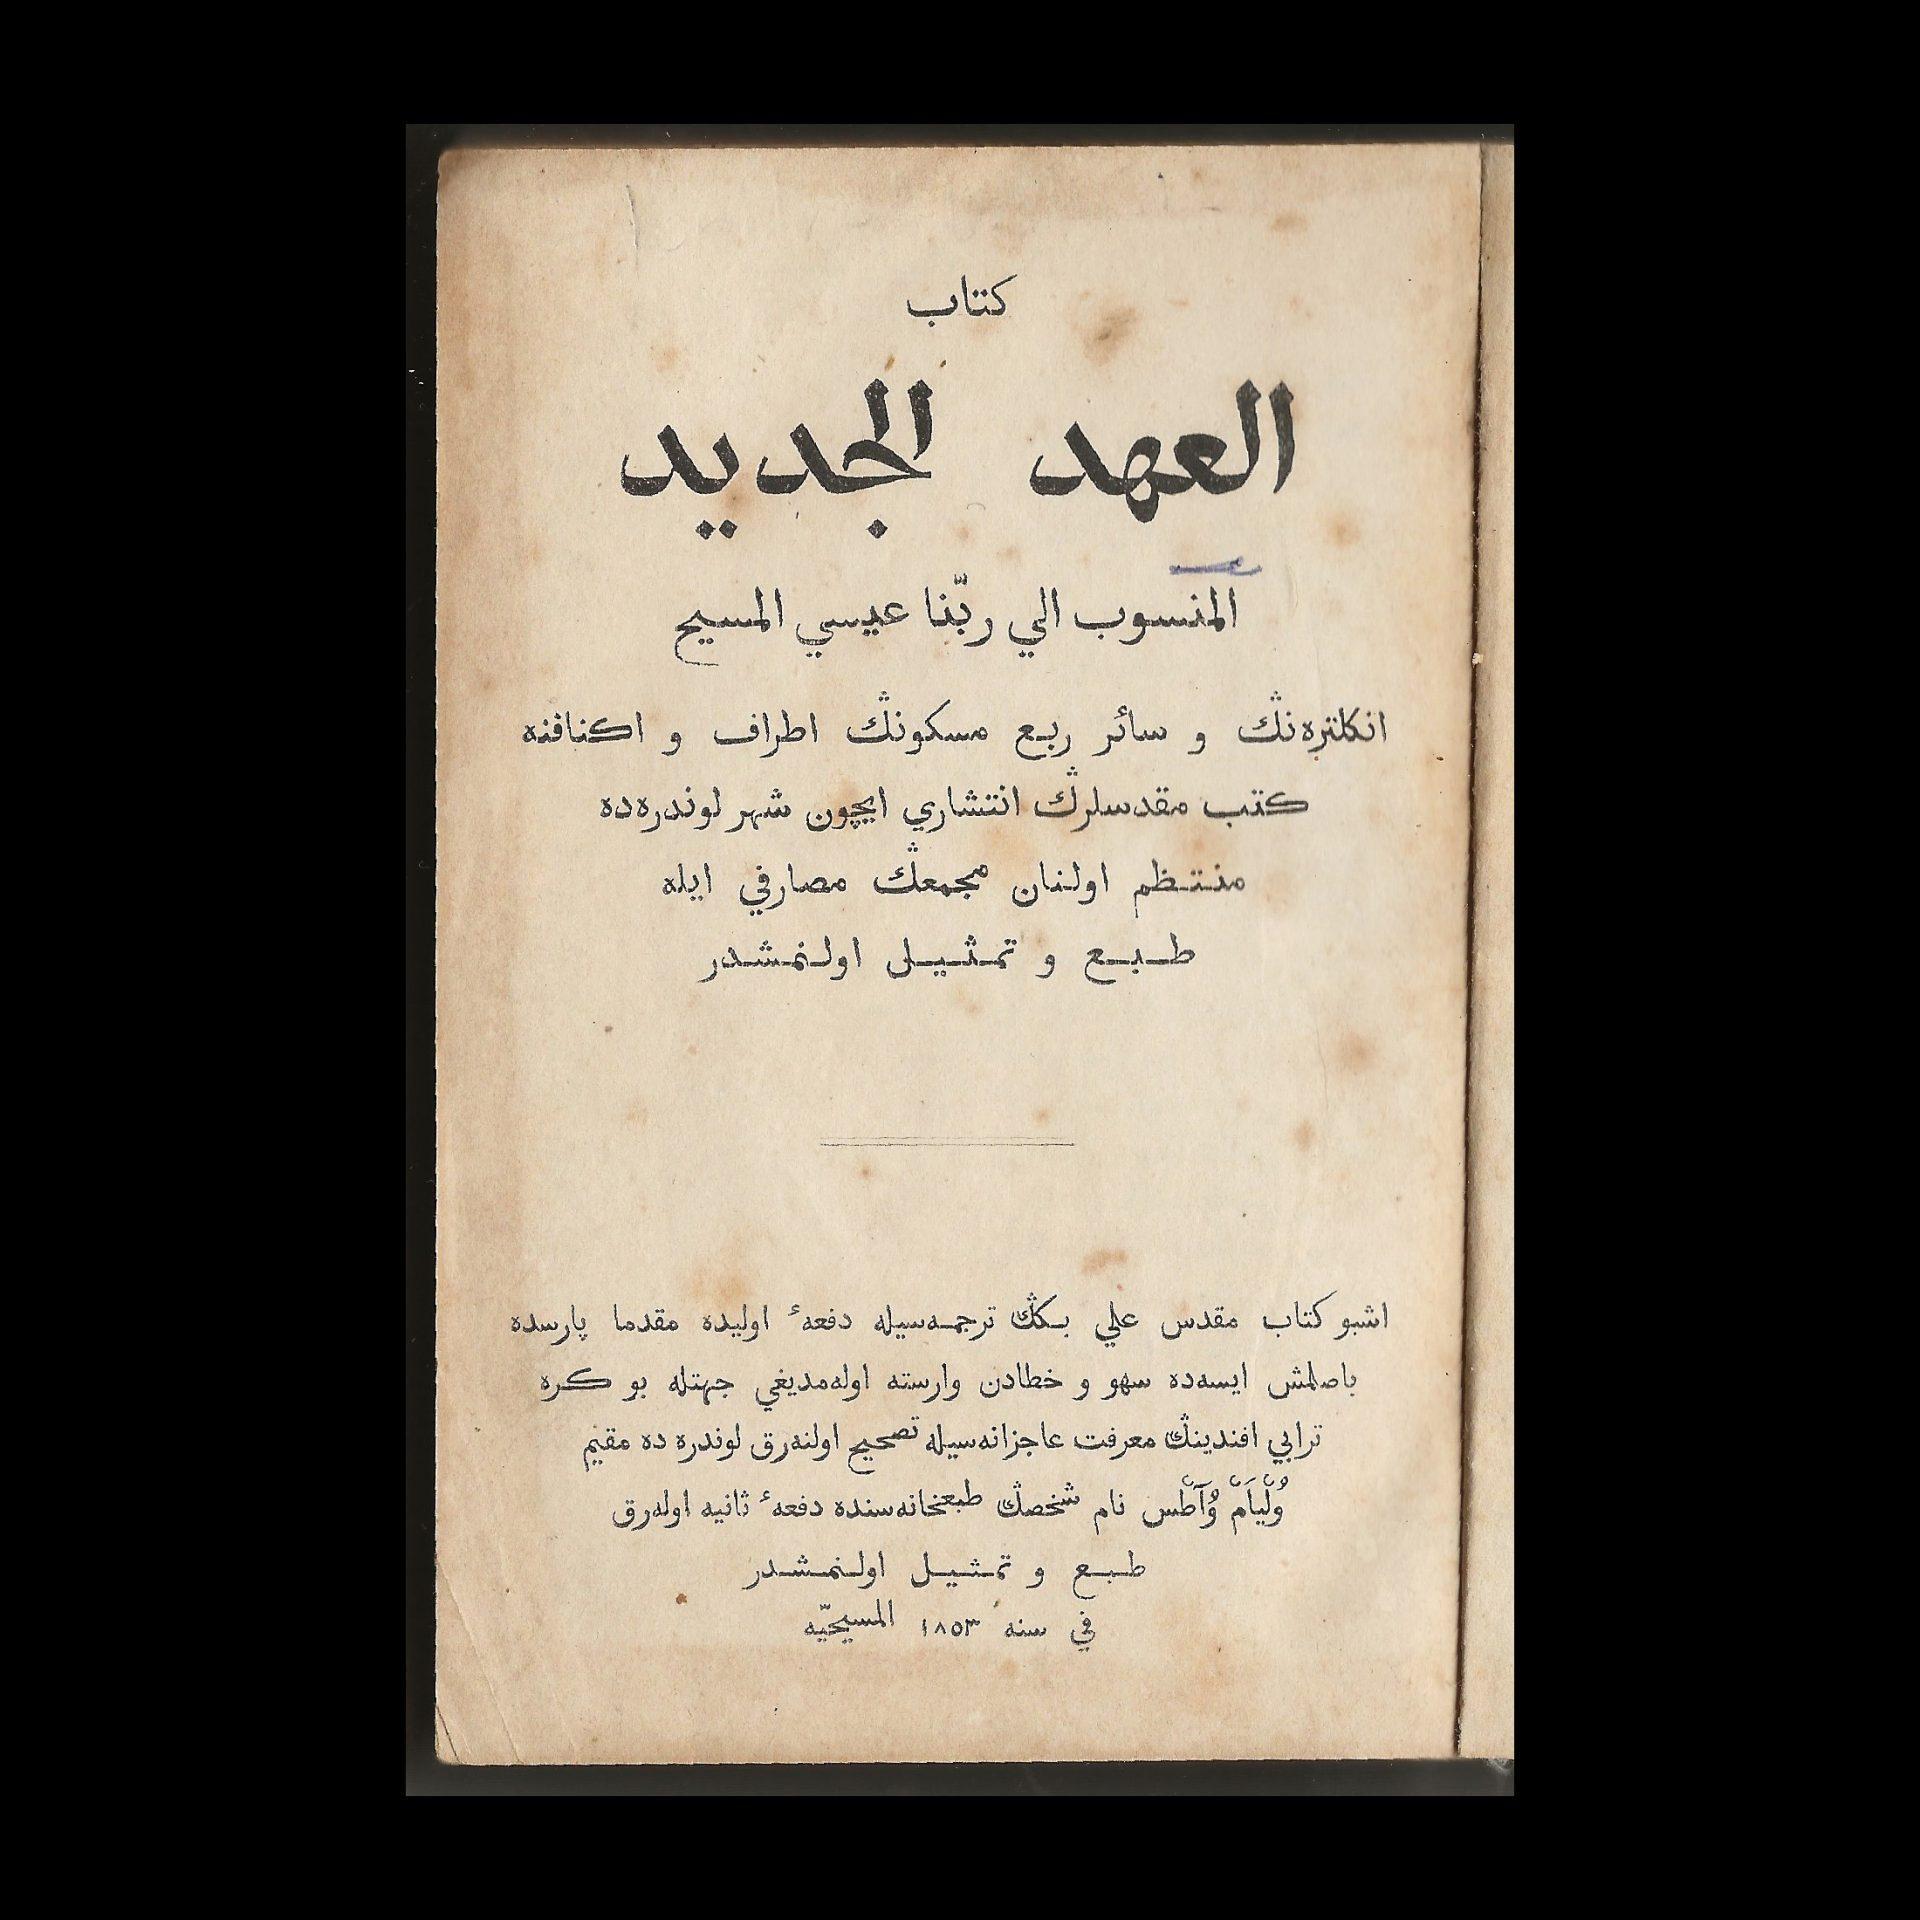 كتاب
العهد الجديد
المنسوب الي ربّنا عيسي المسيح
انكلتره‌نڭ و سائر ربع مسكونڭ اطراف و اكنافنه
كتب مقدسلرڭ انتشاري ايچون شهر لوندره‌ده
منتظم اولنان مجمعڭ مصارفي ايله
طبع و تمثيل اولنمشدر
اشبو كتاب مقدس علي بكڭ ترجمه‌سيله دفعهٔ اوليده مقدما پارسده
باصلمش ايسه‌ده سهو و خطادن وارسته اوله‌مديغي جهتله بو كره
ترابي افندينڭ معرفت عاجزانه‌سيله تصحيح اولنه‌رق لوندره ده مقيم
وُلْيَامْ وُآطْس نام شخصڭ طبعخانه‌سنده دفعهٔ ثانيه اوله‌رق
طبع و تمثيل اولنمشدر
في سنه ١٨٥٣ المسيحيّه